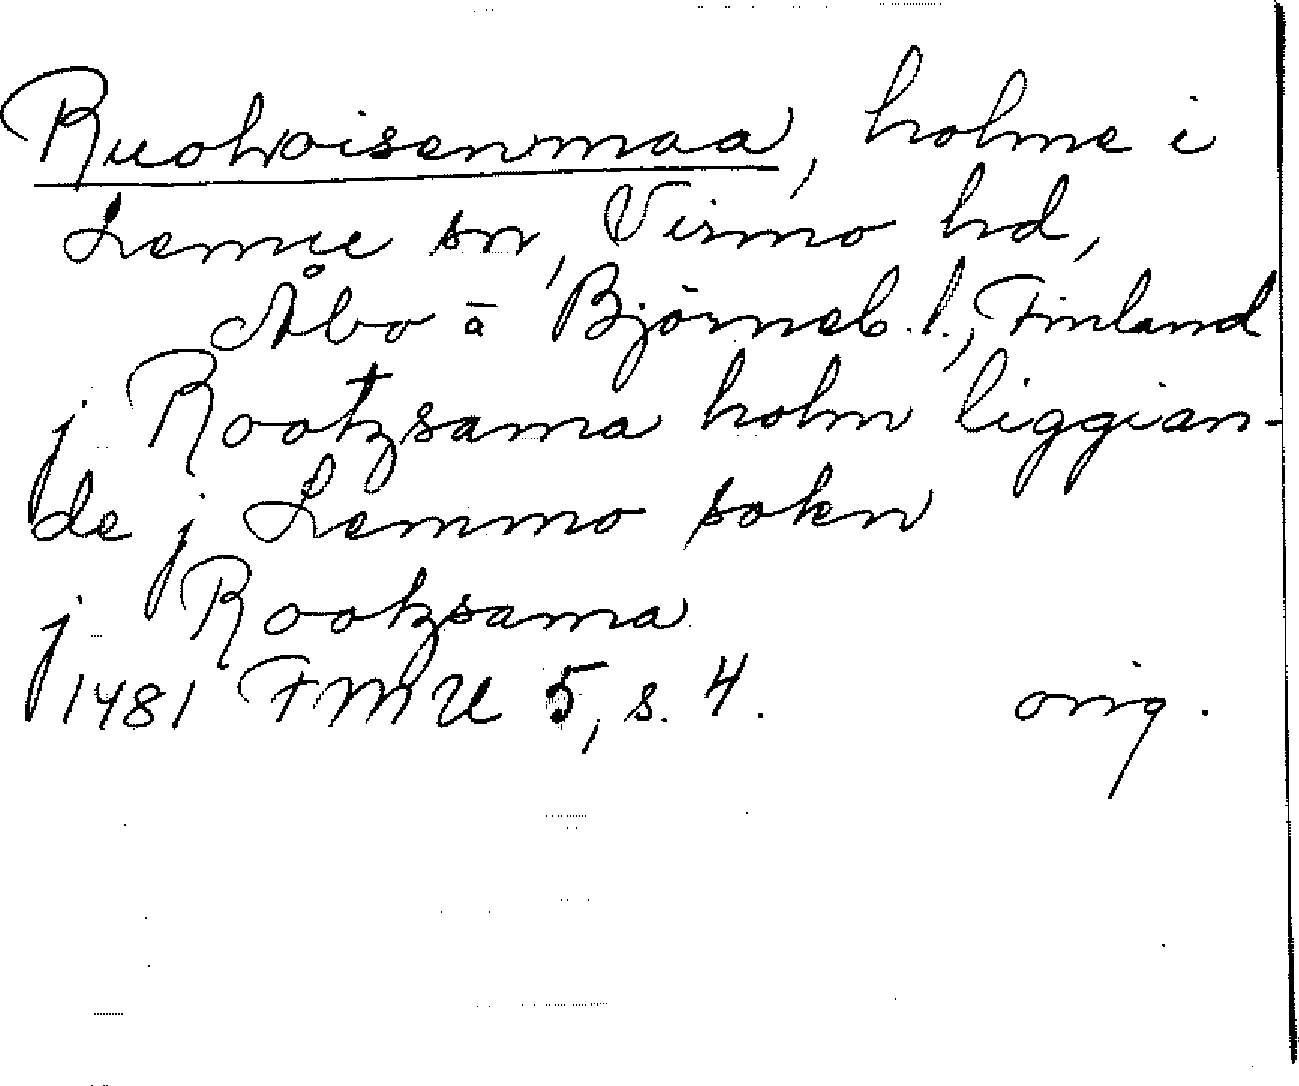 Ruohoisenmaa, holme i
Lemue sn, Virmo hd,
Åbo ā Björneb. l., Finland
j Rootzsama holm liggian-
de j Lemmo sokn
j Rootzsama
1481 FMU 5, s. 4. orig.